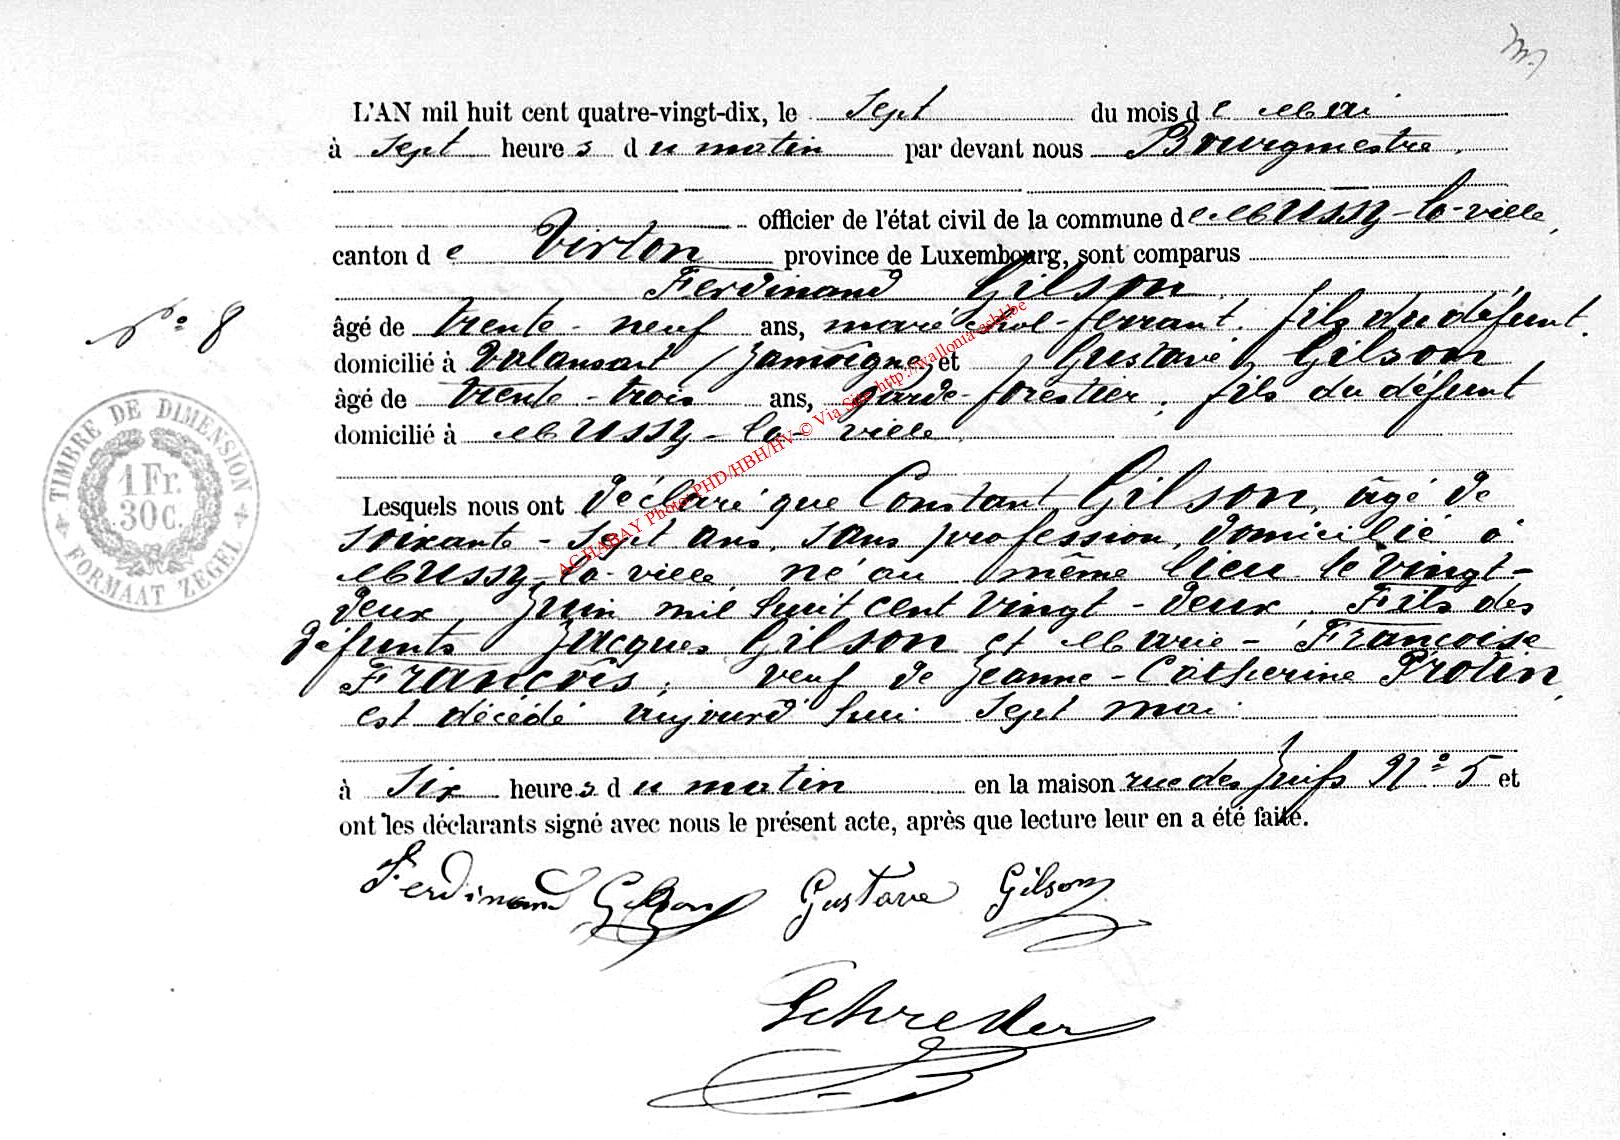 L'AN mil huit cent quatre-vingt-dix, le sept du mois de Mai
à sept heures du matin par devant nous Bourgmestre,
officier de l'état civil de la commune de Mussy-la-ville,
canton de Virton province de Luxembourg, sont comparus
Ferdinand Gilson
N° 8
âgé de trente-neuf ans, maréchal-ferrant, fils du défunt.
domicilié à Valansart, Jamoigne, et Gustave Gilson
âgé de trente-trois ans, garde-forestier, fils du défunt
domicilié à Mussy-la-ville.
TIMBRE DE DIMENSION
1 Fr.
30 C.
FORMAAT ZEGEL
Lesquels nous ont déclaré que Constant Gilson, âgé de
soixante-sept ans, sans profession, domicilié à
Mussy-la-ville, né au même lieu le vingt-
deux Juin mil huit cent vingt-deux. Fils des
défunts Jacques Gilson et Marie-Françoise
François; veuf de Jeanne-Catherine Protin,
est décédé aujourd'hui sept mai
à six heures du matin en la maison rue des Juifs N° 5 et
ont les déclarants signé avec nous le présent acte, après que lecture leur en a été faite.
Ferdinand Gilson Gustave Gilson
AGHABAY Photo PHD/HBH/HV © Via Site http://wallonia-asbl.be